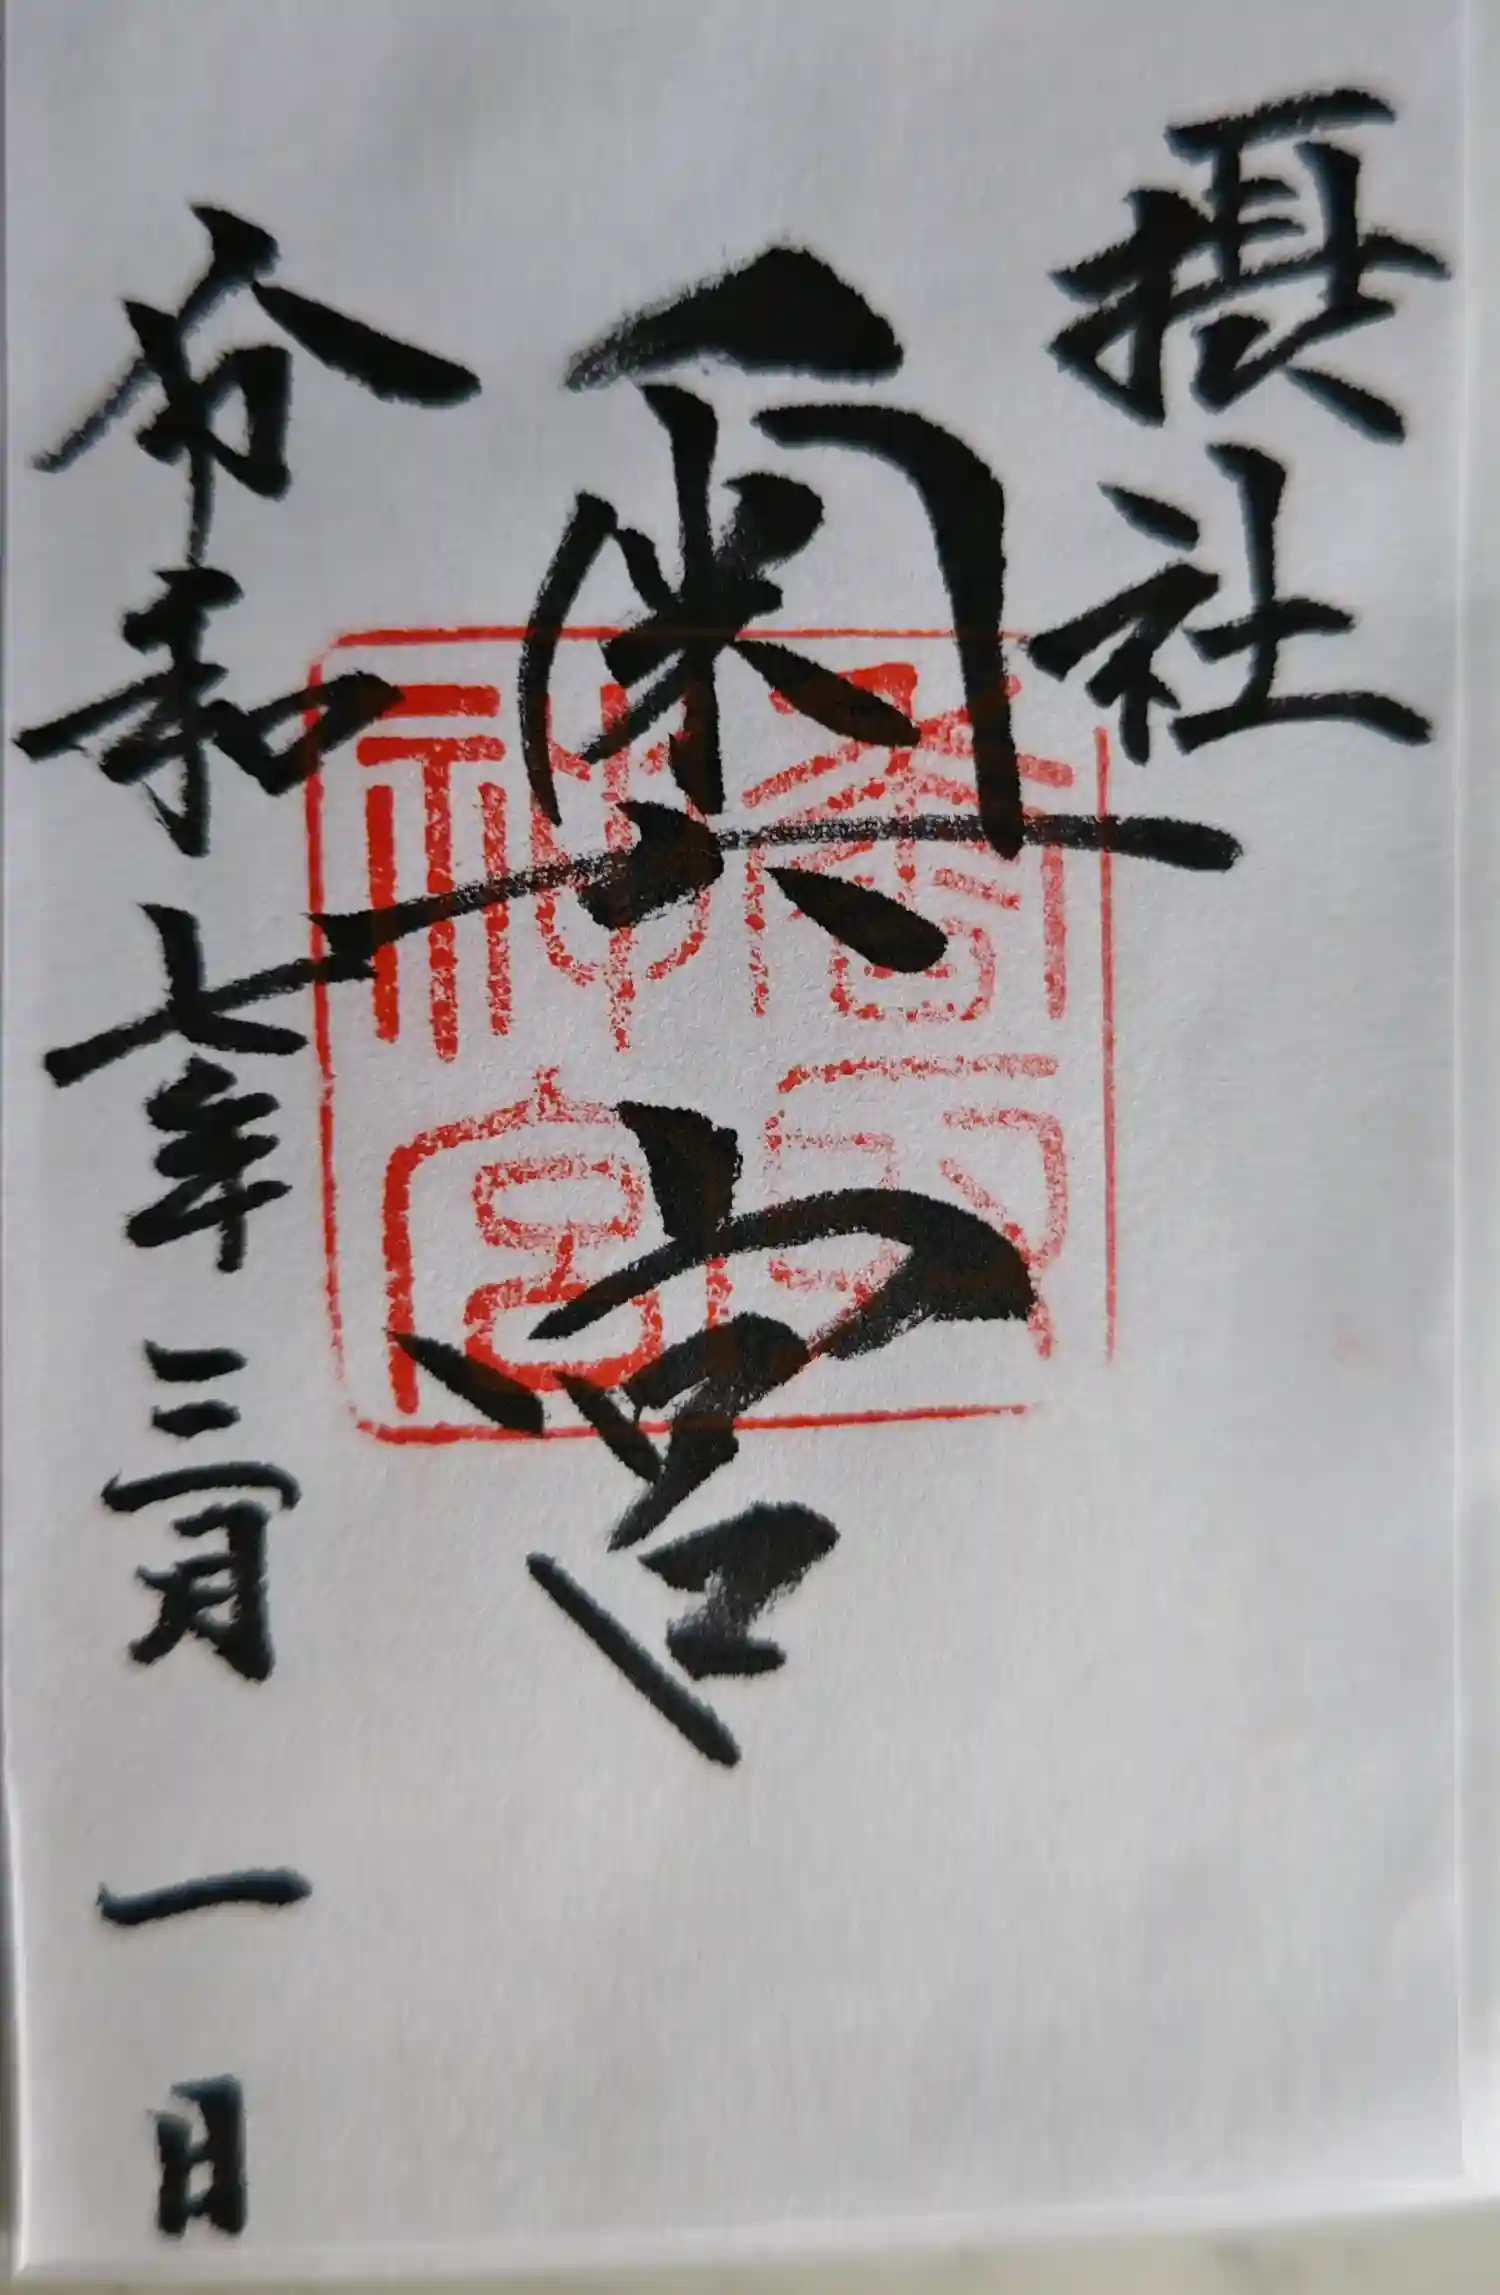 摂社
奥宮
香取
神宮
令和七年三月一日